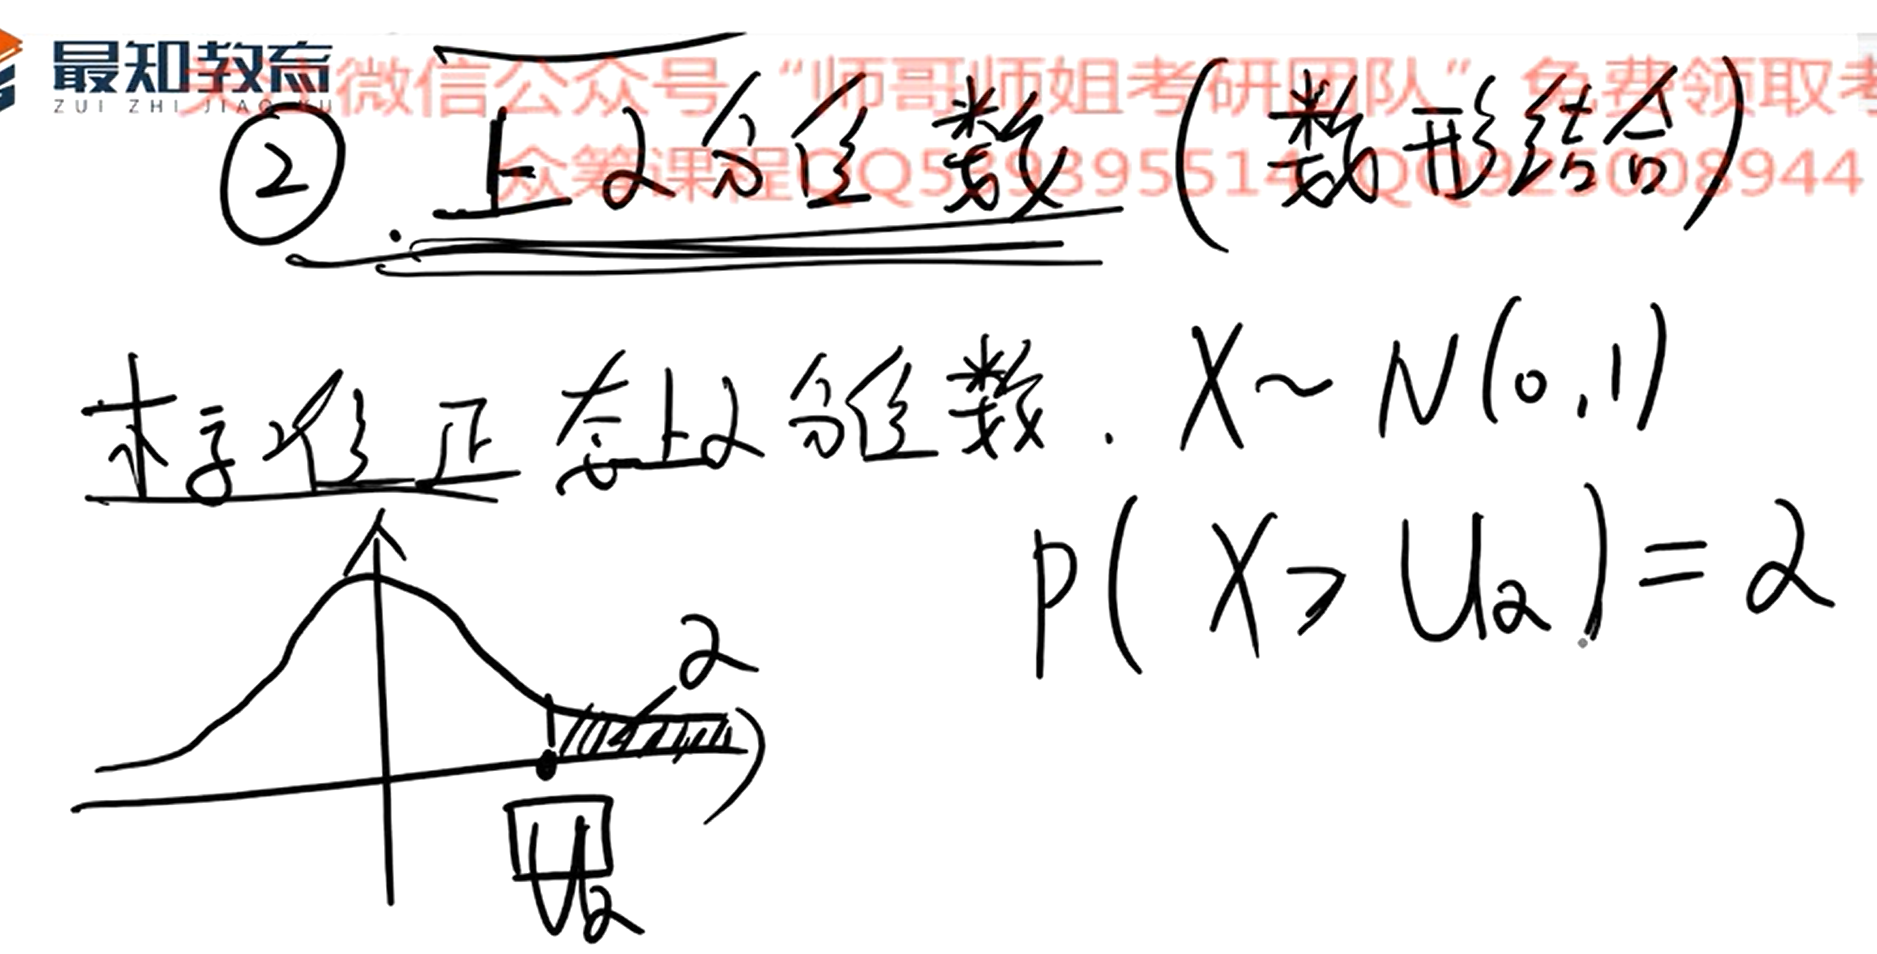 最知教育
ZUI ZHI JIAO YU
微信公众号“师哥师姐考研团队”免费领取考
众筹课程QQ
② 上α分位数(数形结合)
标准正态上α分位数. X~N(0,1)
P(X>Uα)=α
α
Uα